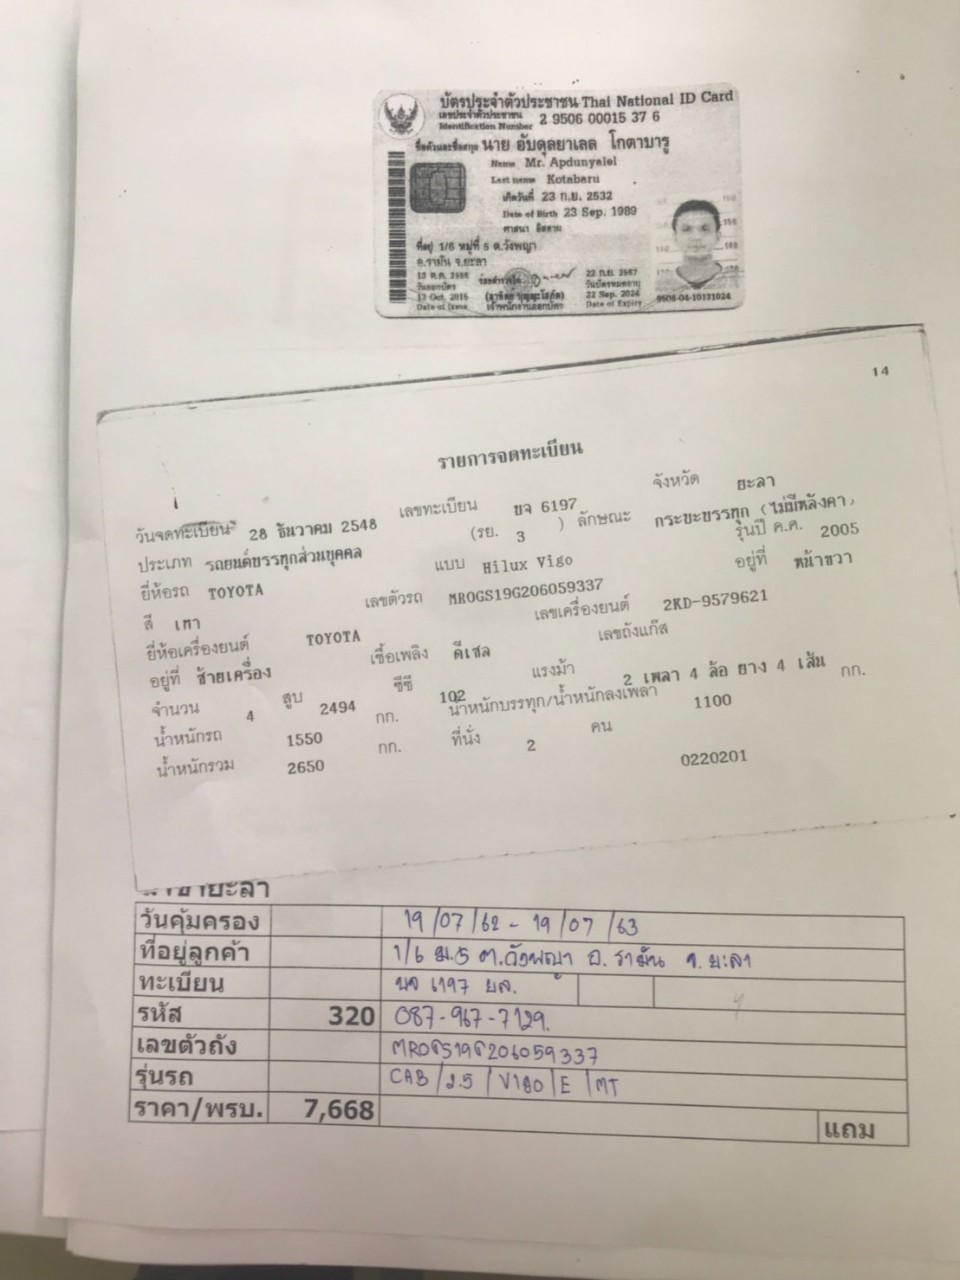 บัตรประจำตัวประชาชน Thai National ID Card
เลขประจำตัวประชาชน
Identification Number 2 9506 00015 37 6
ชื่อตัวและชื่อสกุล นาย อับดุลยาเลล โกตาบารู
Name Mr. Apdunyalel
Last name Kotabaru
เกิดวันที่ 23 ก.ย. 2532
Date of Birth 23 Sep. 1989
ศาสนา อิสลาม
ที่อยู่ 1/6 หมู่ที่ 5 ต.วังพญา
อ.รามัน จ.ยะลา
วันออกบัตร
Date of Issue
เจ้าพนักงานออกบัตร
22 ก.ย. 2567
วันบัตรหมดอายุ
22 Sep. 2024
Date of Expiry
9506-04-10131024
14
รายการจดทะเบียน
วันจดทะเบียน 28 ธันวาคม 2548 เลขทะเบียน บจ 6197 จังหวัด ยะลา
ประเภท รถยนต์บรรทุกส่วนบุคคล (รย. 3 ) ลักษณะ กระบะบรรทุก (ไม่มีหลังคา)
ยี่ห้อรถ TOYOTA แบบ Hilux Vigo รุ่นปี ค.ศ. 2005
สี เทา เลขตัวรถ MR0GS19G206059337 อยู่ที่ หน้าขวา
ยี่ห้อเครื่องยนต์ TOYOTA เลขเครื่องยนต์ 2KD-9579621
อยู่ที่ ซ้ายเครื่อง เชื้อเพลิง ดีเซล เลขถังแก๊ส
จำนวน 4 สูบ 2494 ซีซี 102 แรงม้า 2 เพลา 4 ล้อ ยาง 4 เส้น
น้ำหนักรถ 1550 กก. น้ำหนักบรรทุก/น้ำหนักลงเพลา 1100 กก.
น้ำหนักรวม 2650 กก. ที่นั่ง 2 คน
0220201
วันคุ้มครอง 19/07/62 - 19/07/63
ที่อยู่ลูกค้า 1/6 ม.5 ต.วังพญา อ.รามัน จ.ยะลา
ทะเบียน บจ 6197 ยล.
รหัส 320 087-967-7129.
เลขตัวถัง MR0GS19G206059337
รุ่นรถ CAB/2.5/VIGO/E/MT
ราคา/พรบ. 7,668 แถม